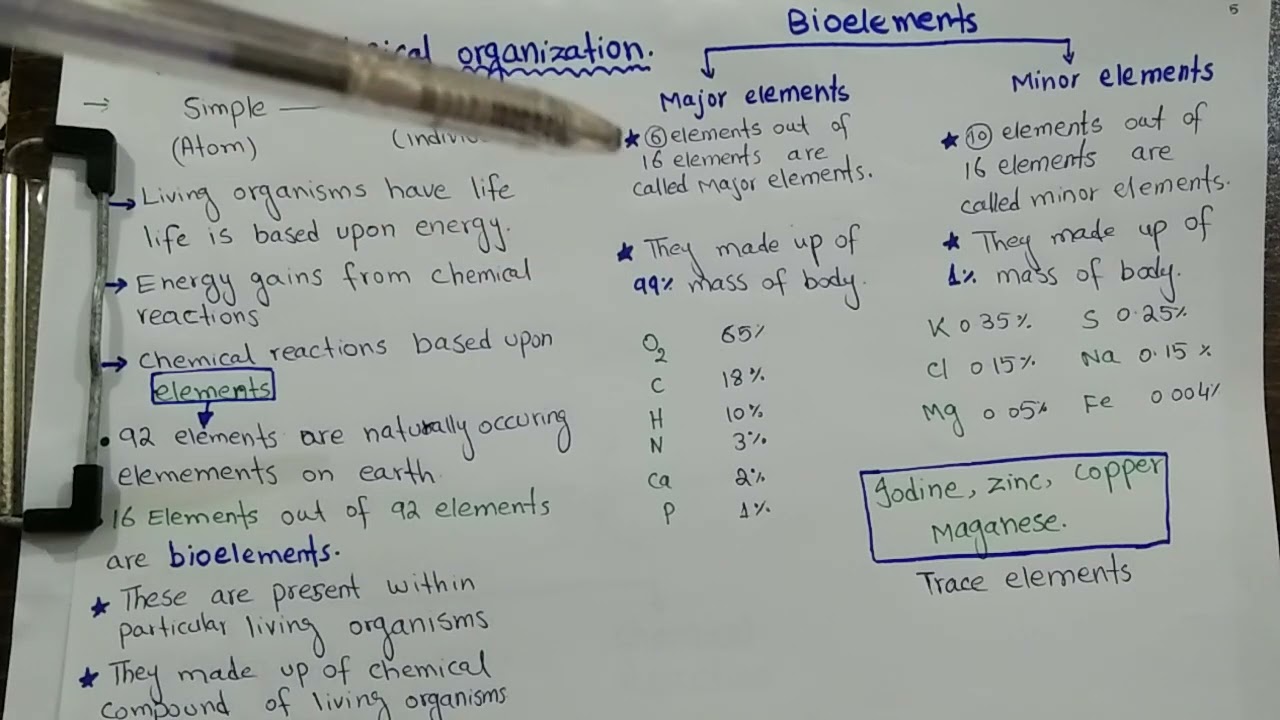 5
organization.
→ Simple —
(Atom)
→ Living organisms have life
life is based upon energy.
→ Energy gains from chemical
reactions
→ Chemical reactions based upon
elements
• 92 elements are naturally occuring
elemements on earth.
• 16 Elements out of 92 elements
are bioelements.
★ These are present within
particular living organisms
★ They made up of chemical
compound of living organisms
Bioelements
Major elements
★ 6 elements out of
16 elements are
called Major elements.
★ They made up of
99% mass of body.
O2 65%
C 18%
H 10%
N 3%
Ca 2%
P 1%
Minor elements
★ 10 elements out of
16 elements are
called minor elements.
★ They made up of
1% mass of body.
K 0.35% S 0.25%
Cl 0.15% Na 0.15%
Mg 0.05% Fe 0.004%
Iodine, zinc, copper
Maganese.
Trace elements